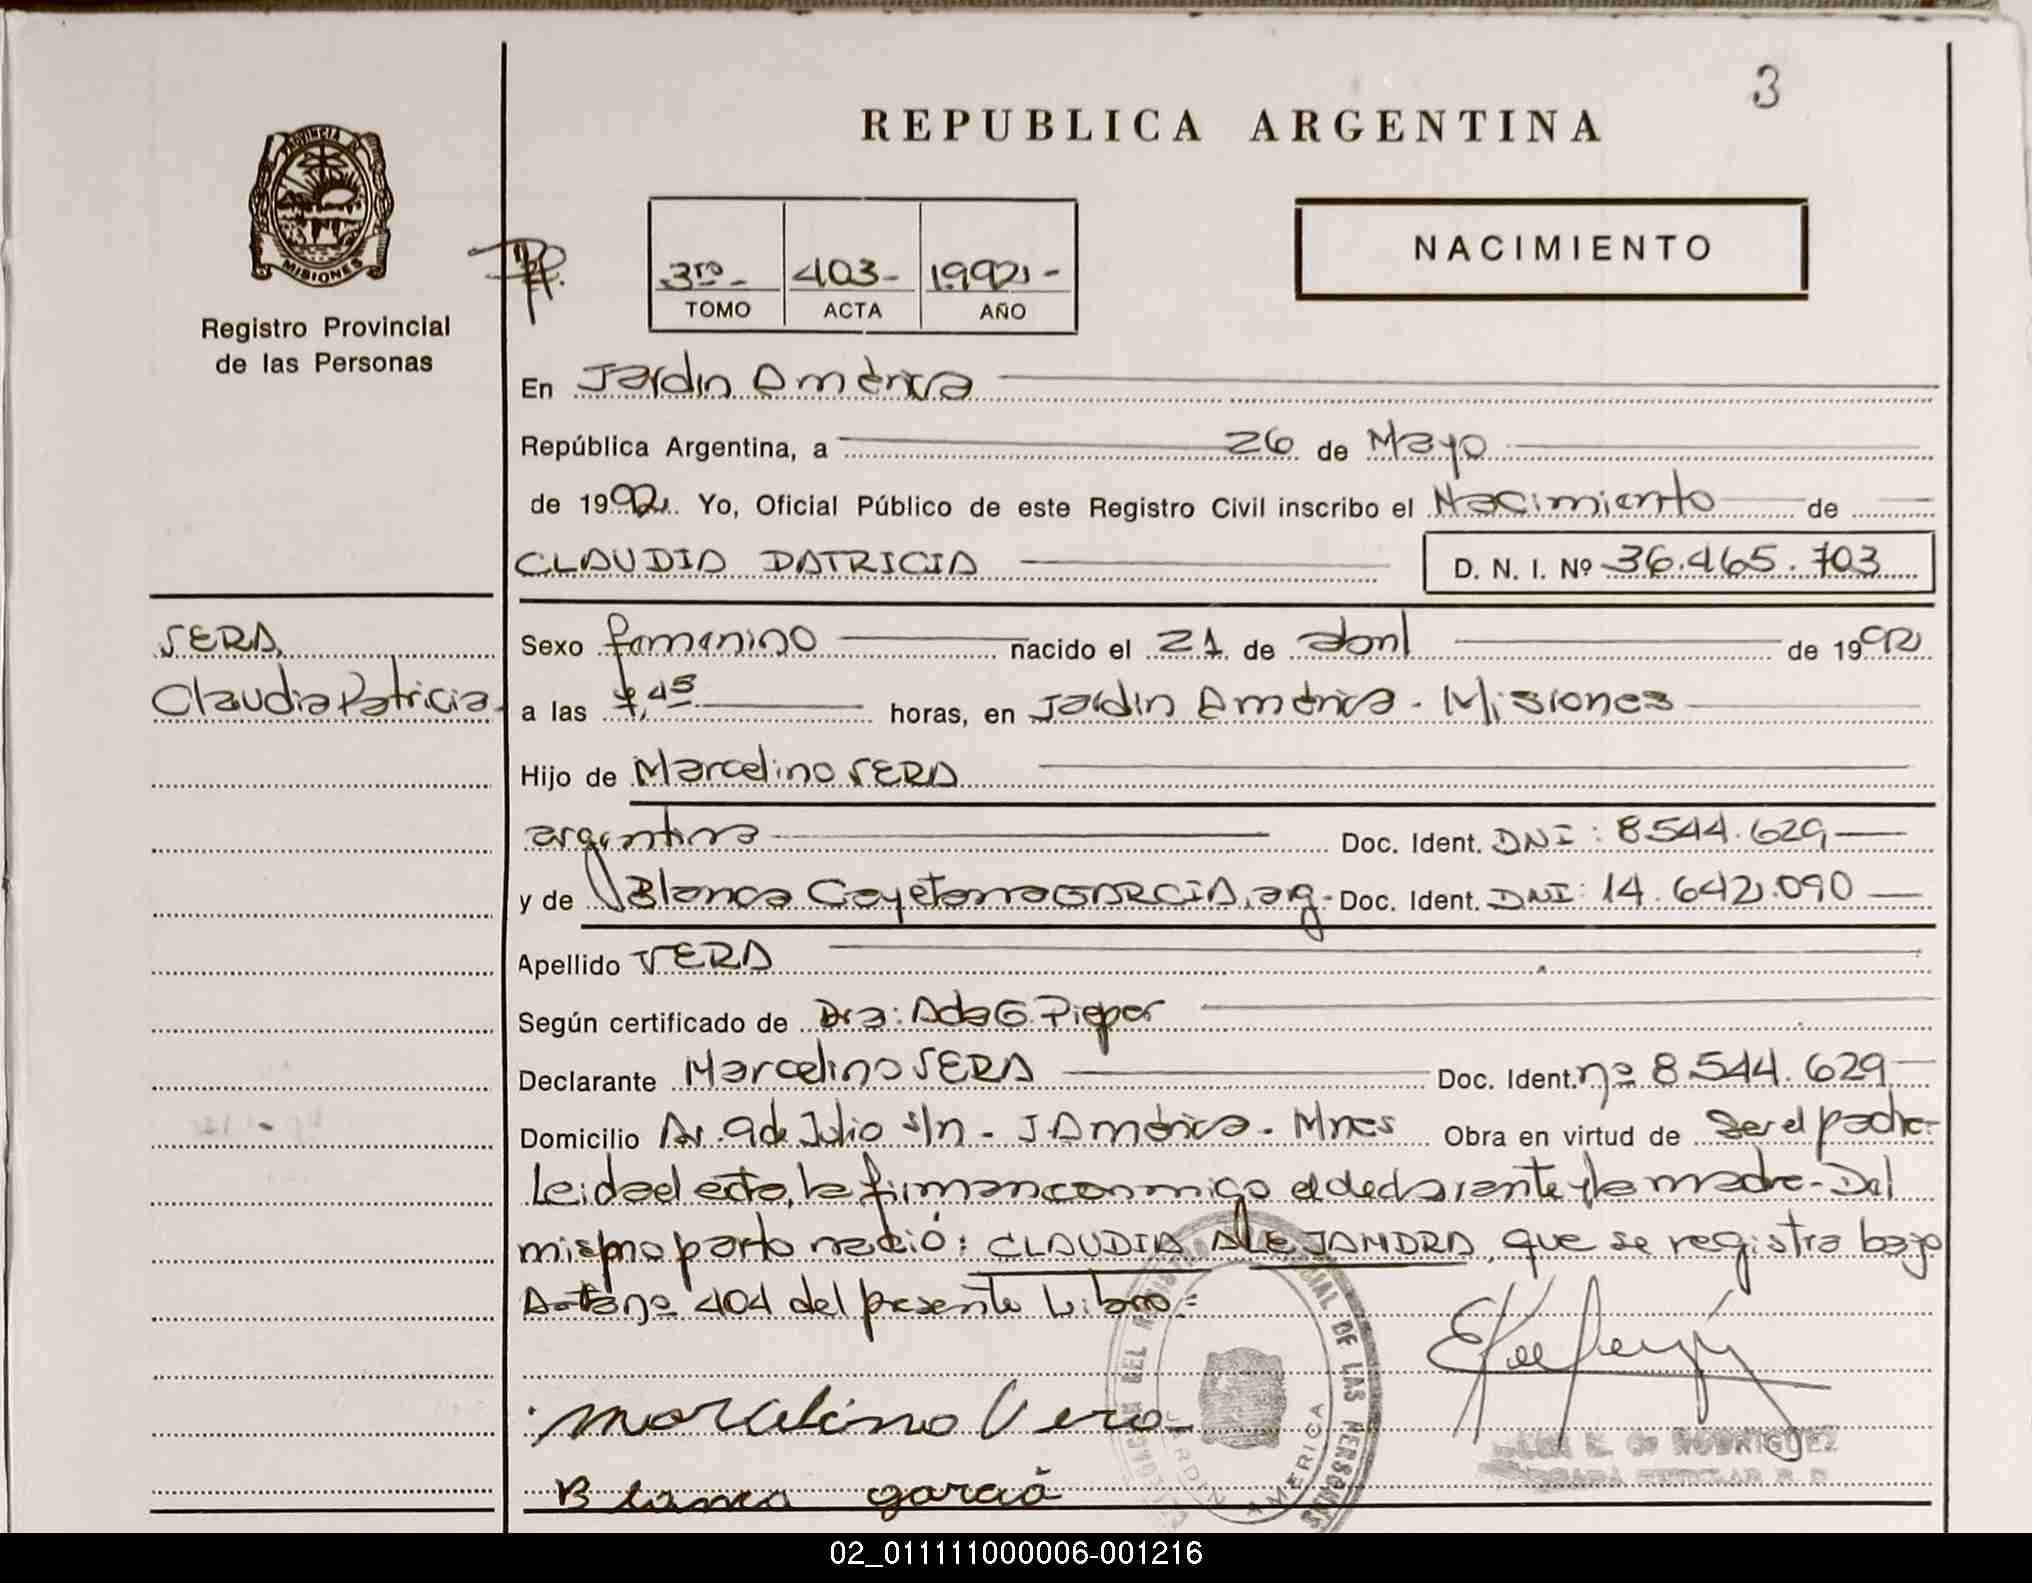 3
REPUBLICA ARGENTINA
PROVINCIA DE
MISIONES
Registro Provincial
de las Personas
3ro - 403 - 1992 -
TOMO ACTA AÑO
NACIMIENTO
En Jardín América
República Argentina, a 26 de Mayo
de 1992. Yo, Oficial Público de este Registro Civil inscribo el Nacimiento de
CLAUDIA PATRICIA D. N. I. Nº 36.465.703
VERA
Claudia Patricia
Sexo femenino nacido el 21 de abril de 1992
a las 7,45 horas, en Jardín América - Misiones
Hijo de Marcelino VERA
argentina Doc. Ident. DNI: 8.544.629
y de Blanca Cayetana GARCIA, arg- Doc. Ident. DNI: 14.642.090
Apellido VERA
Según certificado de Dra: Ada G. Pieper
Declarante Marcelino VERA Doc. Ident. nº 8.544.629
Domicilio Av. 9 de Julio s/n - J. América - Mnes Obra en virtud de Ser el padre-
Leída el acta, la firman conmigo el declarante y la madre- Del
mismo parto nació: CLAUDIA ALEJANDRA, que se registra bajo
Acta nº 404 del presente Libro=
Marcelino Vera
Blanca garcia
DEL REGISTRO PROVINCIAL DE LAS PERSONAS
JARDIN AMERICA
E. de RODRIGUEZ
02_011111000006-001216